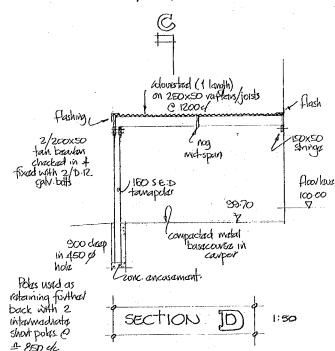 C
colorsteel (1 length)
on 250x50 rafters/joists
@ 1200 c/
flashing
flash
nog
mid-span
150x50
stringer
2/200x50
tan. bearers
checked in &
fixed with 2/D.12
galv. bolts
150 S.E.D
tanapoles
floor level
100.00
99.70
compacted metal
basecourse in
carport
900 deep
in 450 ϕ
hole
conc. encasement.
Poles used as
retaining further
back with 2
intermediate
short poles @
± 850 c/c
SECTION D 1:50